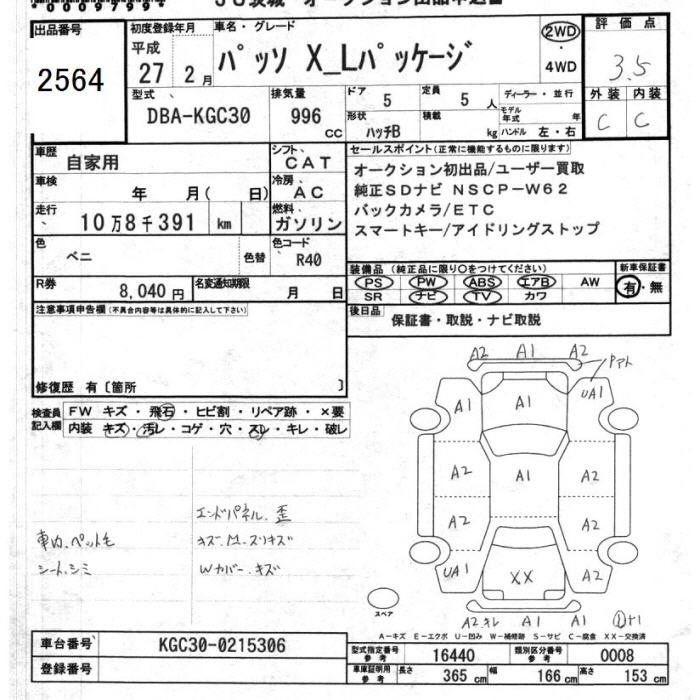 出品番号
2564
初度登録年月
平成
27 2月
車名・グレード
パッソ X_Lパッケージ
2WD
・
4WD
評価点
3.5
外装 内装
C C
型式
DBA-KGC30
排気量
996
cc
ドア
5
定員
5 人
形状
ハッチB
積載
kg
ディーラー・並行
モデル年式 年
ハンドル 左・右
車歴 自家用
シフト
CAT
車検 年 月( 日)
冷房
AC
走行 10万8千391 km
燃料
ガソリン
色 ベニ 色替
色コード
R40
R券 8,040円
名変通知期限 月 日
セールスポイント(正常に機能するものに限ります)
オークション初出品/ユーザー買取
純正SDナビ NSCP-W62
バックカメラ/ETC
スマートキー/アイドリングストップ
装備品(純正品に限り○をつけてください)
PS PW ABS エアB AW
SR ナビ TV カワ
新車保証書
有・無
後日品 保証書・取説・ナビ取説
注意事項申告欄(不具合内容等は具体的に記入して下さい)
修復歴 有〔箇所 〕
検査員記入欄
FW キズ・飛石・ヒビ割・リペア跡・×要
内装 キズ・汚レ・コゲ・穴・スレ・キレ・破レ
エンドパネル、歪
車内、ペット毛
シート、シミ
Wカバー、キズ
A2 A1 A2
A1 A1 UA1
A2 A1 A2
A2 A2
UA1 XX A2
スペア
A2キレ A1 A1
A-キズ E-エクボ U-凹み W-補修跡 S-サビ C-腐食 XX-交換済
車台番号 KGC30-0215306
登録番号
型式指定番号 参考 16440
類別区分番号 参考 0008
車庫証明用 参考 長さ 365 cm 幅 166 cm 高さ 153 cm